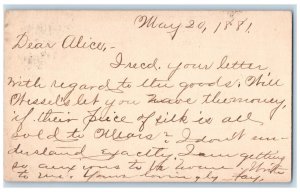 May 20, 1881.
Dear Alice,-
I recd. your letter
with regard to the goods. Will
Wessel's let you have the money,
if their piece of silk is all
sold to ? I don't un-
derstand exactly, I am getting
so anxious to be home. Write
to me. Yours lovingly Fay.